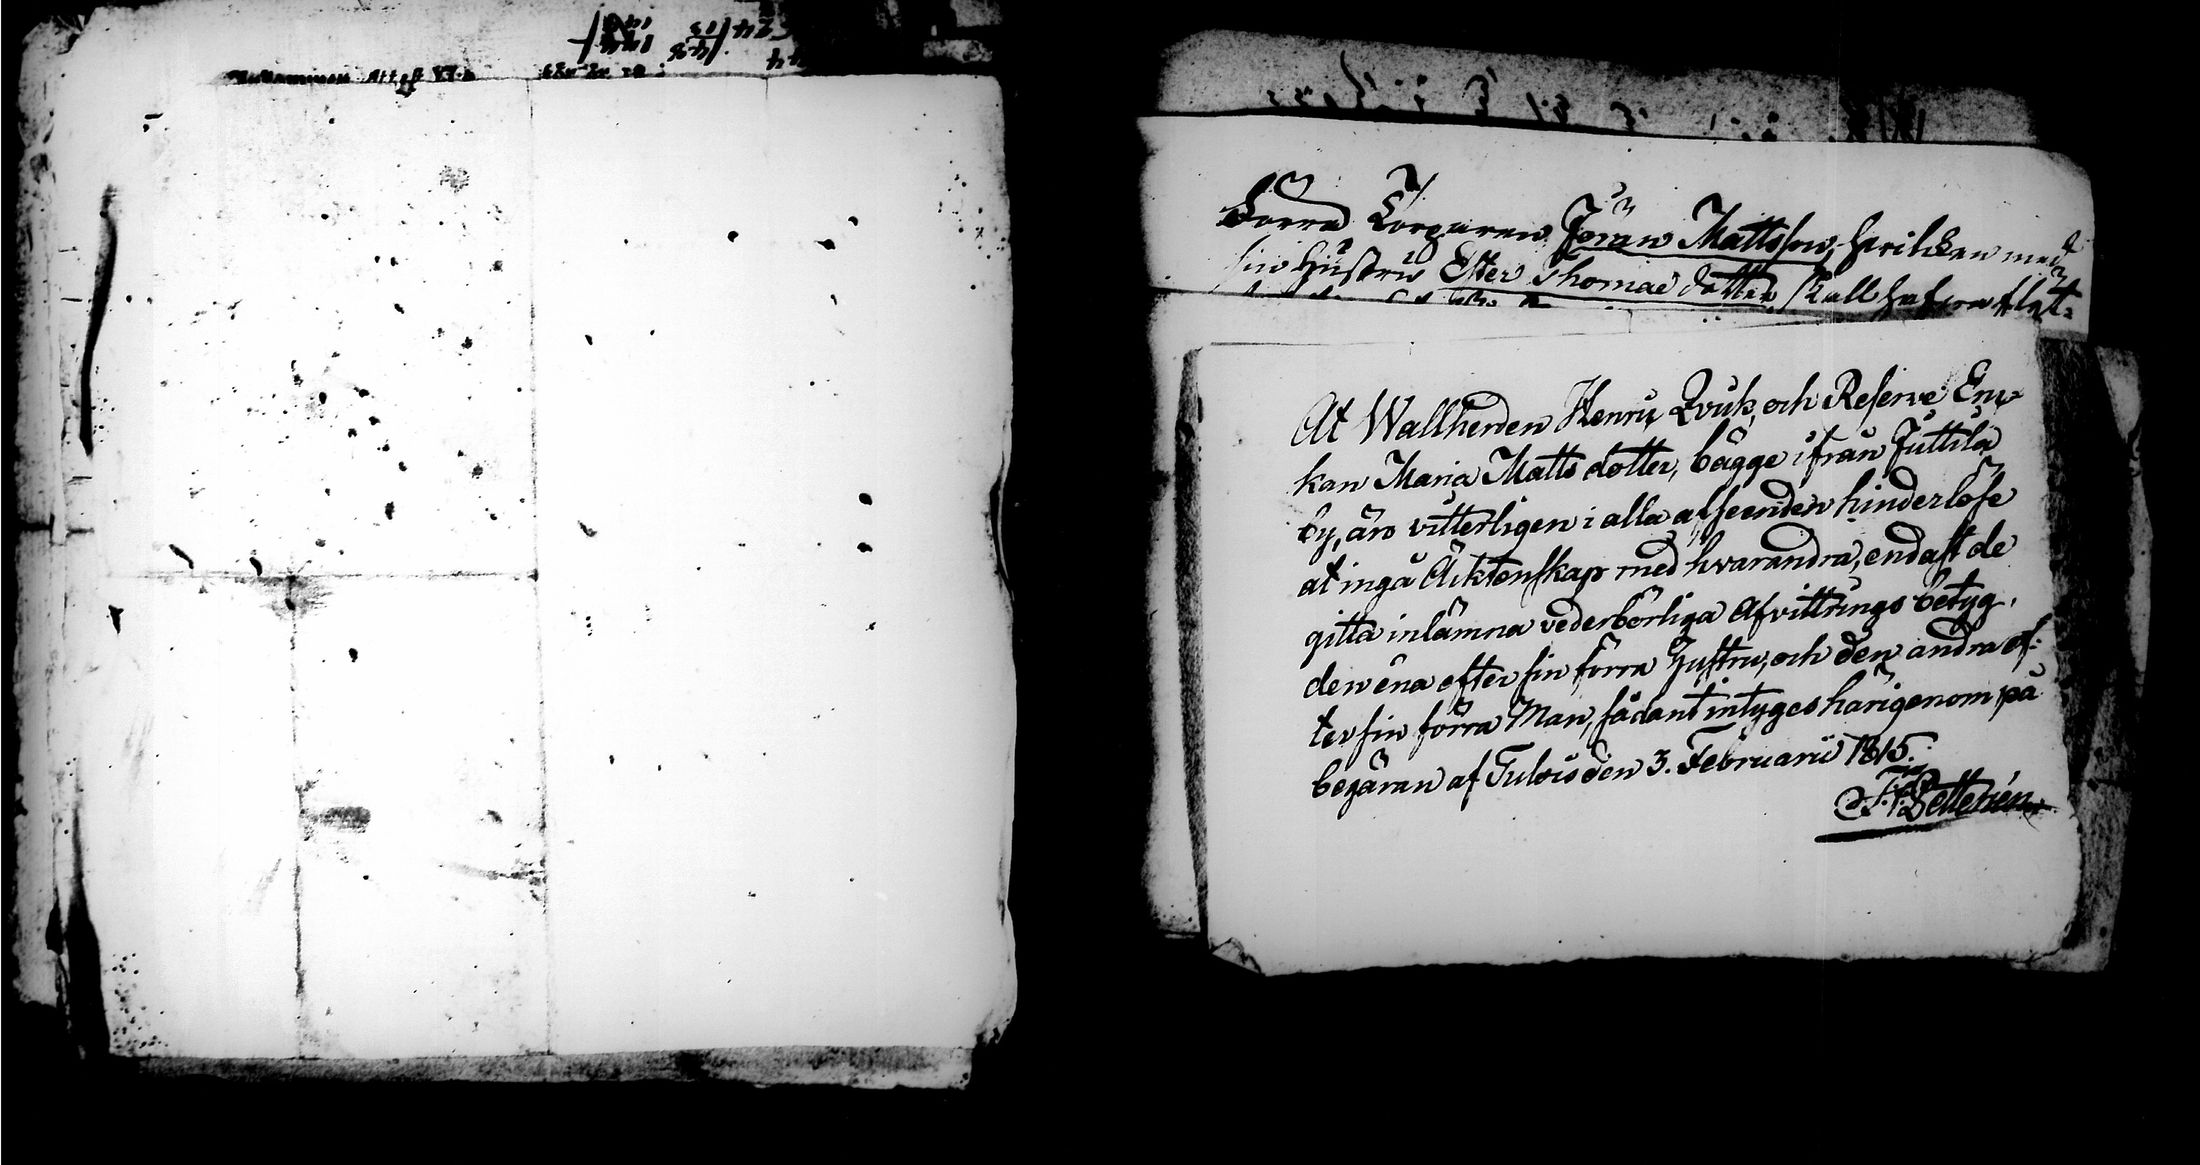 Förra Torparen Jöran Mattsson, hvilken med
sin Hustru Ester Thomæ dotter, skall hafva flyt-
At Wallherden Henric Qvick, och Reserve En-
kan Maria Matts dotter, bägge ifrån Juttila
by, äro vitterligen i alla afseenden hinderlöse
at ingå Äcktenskap med hvarandra, endast de
gitta inlämna vederbörliga Afvittrings betyg,
den ena efter sin förra Hustru, och den andra ef-
ter sin förra Man, sådant intyges härigenom på
begäran af Tulois den 3. Februarii 1815.